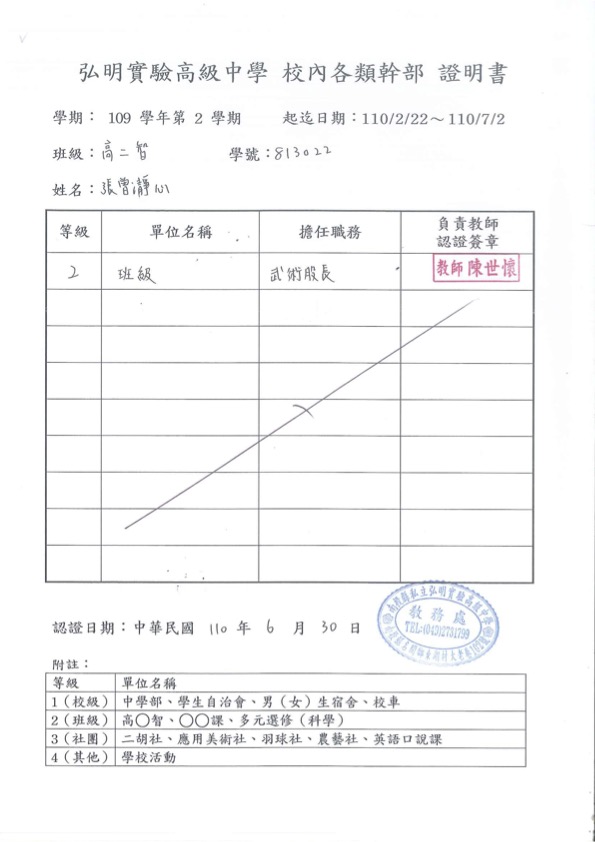 弘明實驗高級中學 校內各類幹部 證明書
學期： 109 學年第 2 學期 起迄日期：110/2/22～110/7/2
班級：高二智 學號：813022
姓名：張曾瀞心
等級 單位名稱 擔任職務 負責教師認證簽章
2 班級 武術股長 教師 陳世懷
認證日期：中華民國 110 年 6 月 30 日
南投縣私立弘明實驗高級中學
教務處
TEL:(049)2731799
附註：
等級 單位名稱
1（校級） 中學部、學生自治會、男（女）生宿舍、校車
2（班級） 高○智、○○課、多元選修（科學）
3（社團） 二胡社、應用美術社、羽球社、農藝社、英語口說課
4（其他） 學校活動